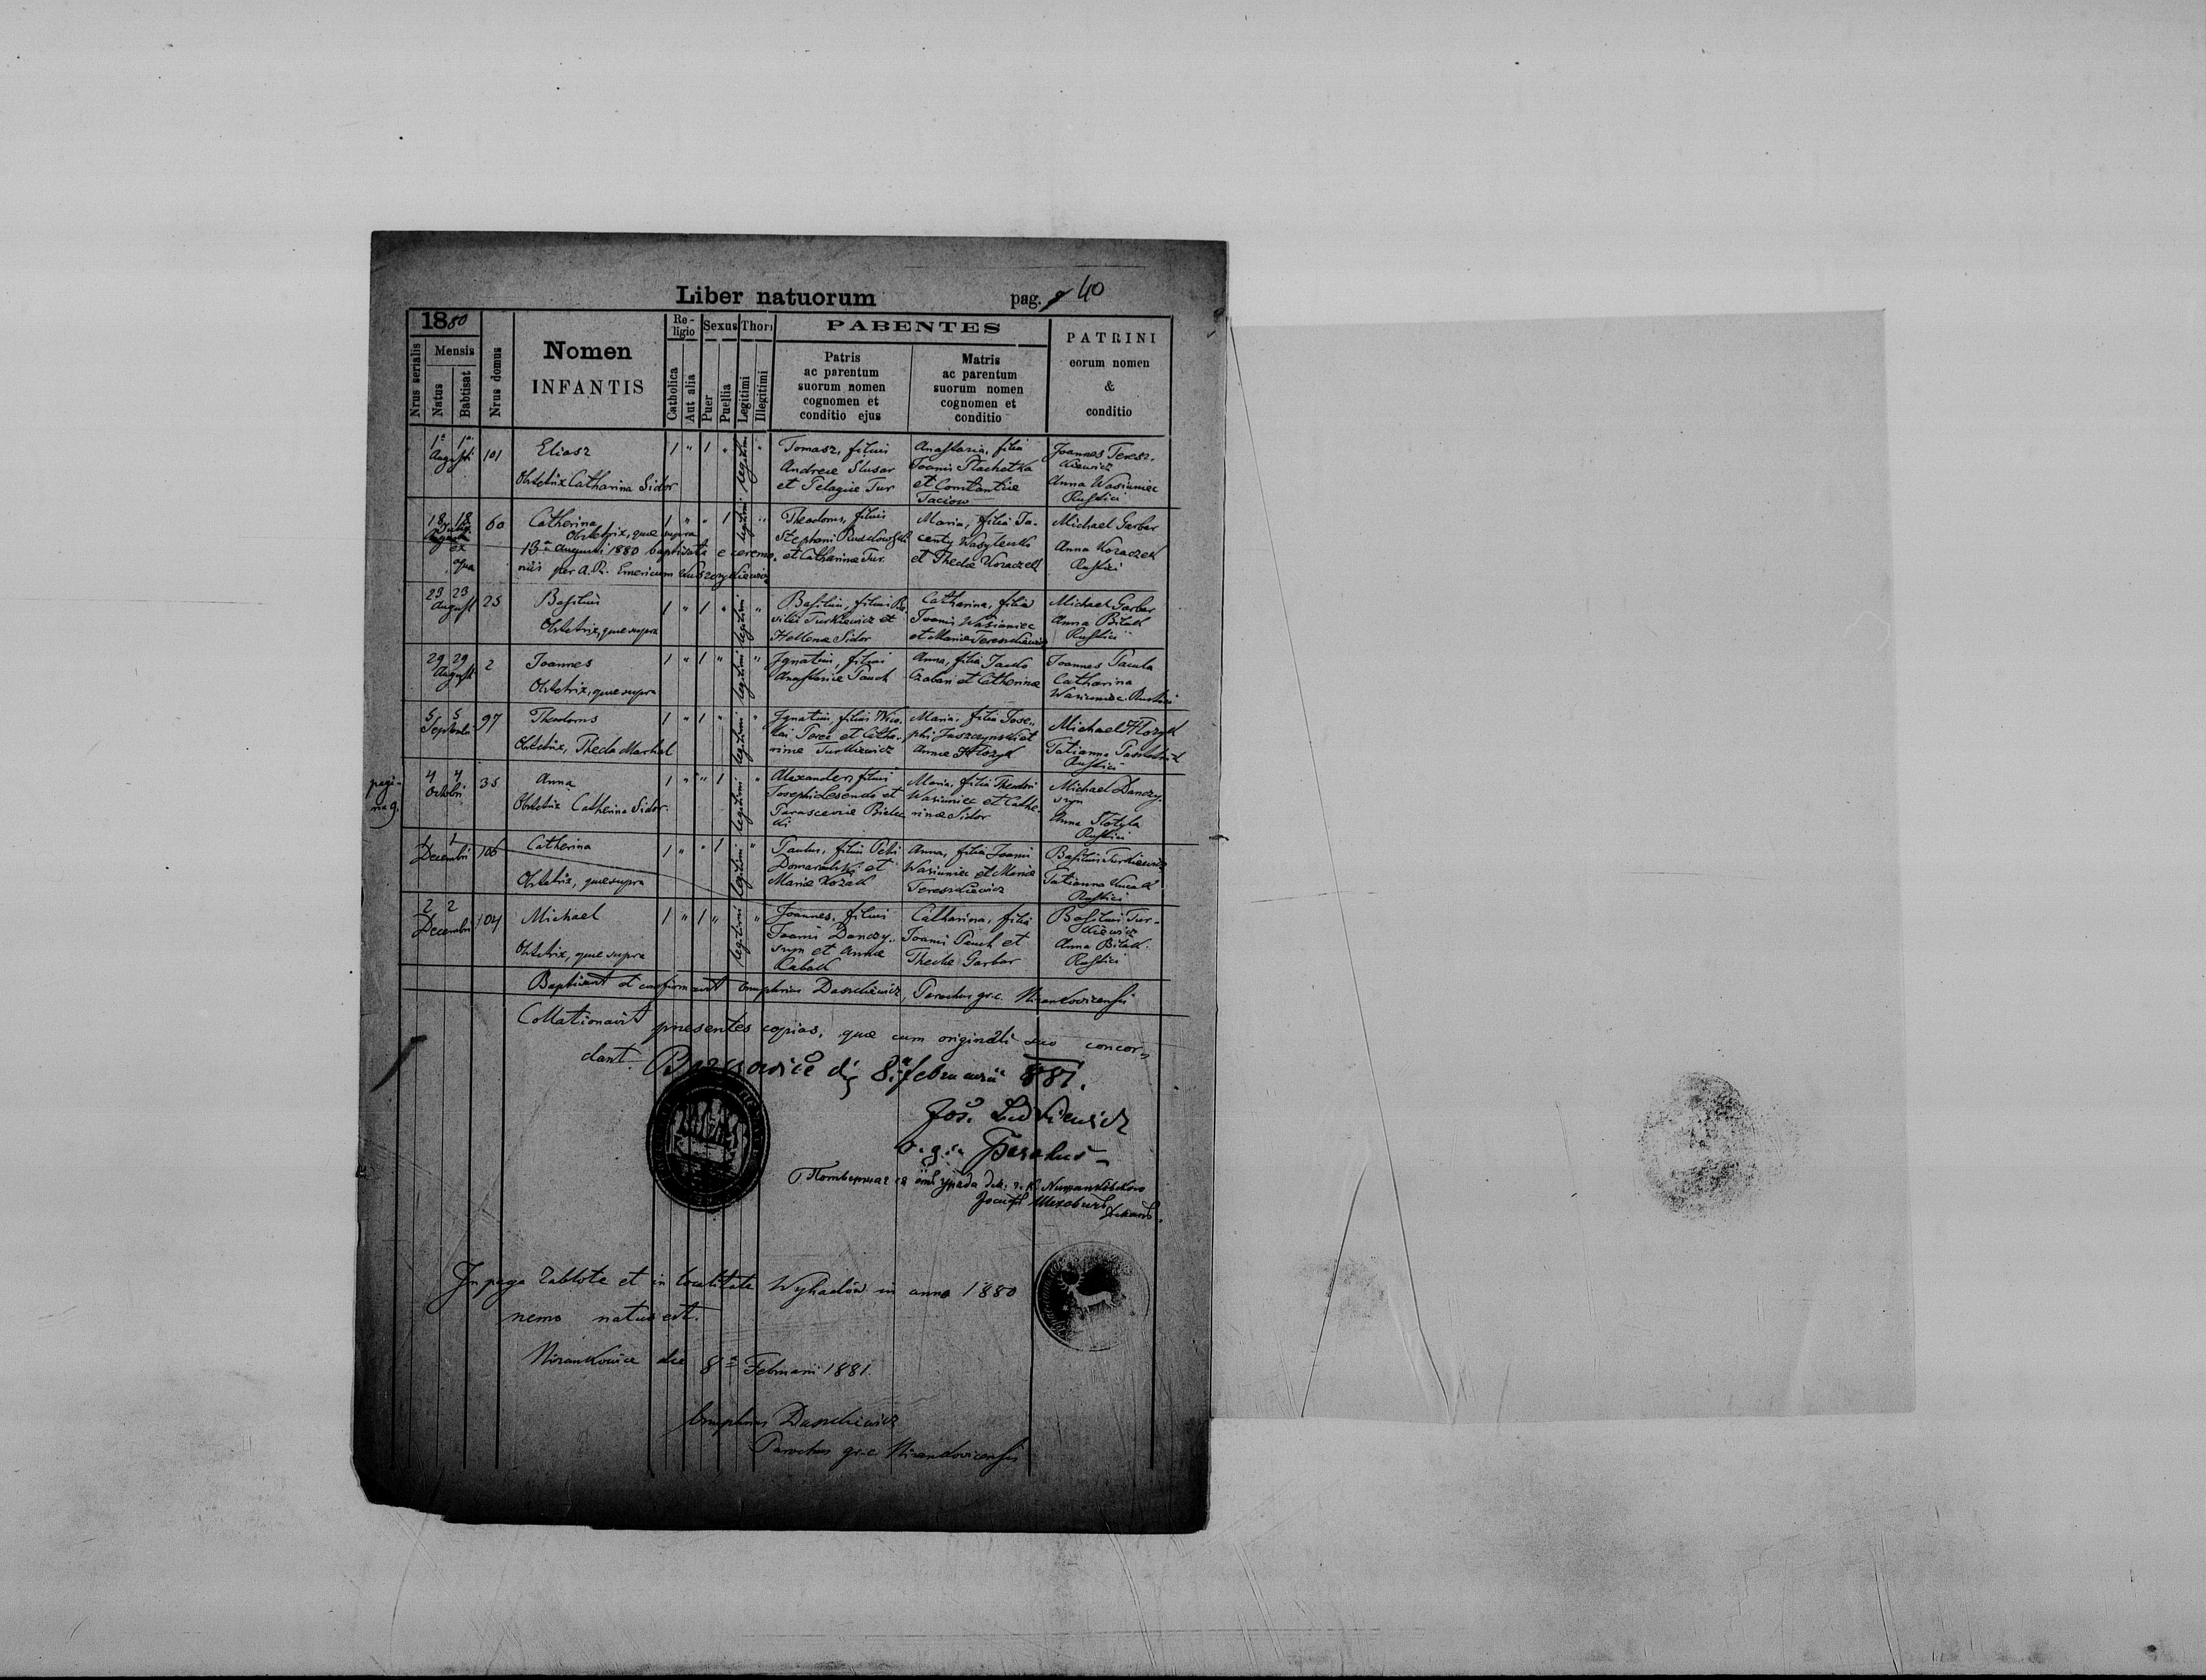 Liber natuorum pag. 40
1880
Nrus serialis
Mensis
Natus
Babtisat
Nrus domus
Nomen
INFANTIS
Re-
ligio
Catholica
Aut alia
Sexus
Puer
Puellia
Thori
Legitimi
Illegitimi
PARENTES
Patris
ac parentum
suorum nomen
cognomen et
conditio ejus
Matris
ac parentum
suorum nomen
cognomen et
conditio
PATRINI
eorum nomen
&
conditio
1a 1a
Augusti
101
Eliasz
Obstetrix Catharina Sidor
1 " 1 " legitimi "
Tomasz, filius
Andreae Slusar
et Pelagiae Tur
Anastasia, filia
Joannis Plachetka
et Constantiae
Taciow
Joannes Teresz-
kiewicz
Anna Wasiuniec
Rustici
18 18
60
Catherina
Obstetrix, quae supra
1 " " 1 legitimi "
13a Augusti 1880 baptisata e ceremo-
niis per A. R. Emericum
Theodorus, filius
Stephani
et Catharinae Tur
Maria, filia Ja-
centy Wasylenko
et Theclae Kozaczek
Michael Garbar
Anna Kozaczek
Rustici
23 23
August
25
Basilius
Obstetrix, quae supra
1 " 1 " legitimi "
Basilius, filius Ba-
silii Turkiewicz et
Hellenae Sidor
Catharina, filia
Joannis Wasiuniec
et Mariae Tereszkiewicz
Michael Garbar
Anna Bilak
Rustici
29 29
August
2
Joannes
Obstetrix, quae supra
1 " 1 " legitimi "
Ignatius, filius
Anastasiae Pauch
Anna, filia Jacko
Czaban et Catherinae
Joannes Pacula
Catharina
Wasiuniec Rustici
5 5
Septembr
97
Theodorus
Obstetrix, Thecla Marhal
1 " 1 " legitimi "
Ignatius, filius Nico-
lai Perec et Cathe-
rinae Turkiewicz
Maria, filia Jose-
phi Jaszczynski et
Annae
Michael
Tatianna
Rustici
pagi-
na 9.
4 4
Octobri
35
Anna
Obstetrix Catherina Sidor
1 " " 1 legitimi "
Alexander, filius
Josephi Lesenko et
Parasceviae Bielec-
ki
Maria, filia Theodori
Wasiuniec et Cathe-
rinae Sidor
Michael Danczy-
szyn
Anna
Rustici
1 1
Decembri
106
Catherina
Obstetrix, quae supra
1 " " 1 legitimi "
Paulus, filius Petri
Domaradzki et
Mariae Kozak
Anna, filia Joannis
Wasiuniec et Mariae
Tereszkiewicz
Basilius Turkiewicz
Tatianna
Rustici
2 2
Decembri
104
Michael
Obstetrix, quae supra
1 " 1 " legitimi "
Joannes, filius
Joannis Danczy-
szyn et Annae
Cabak
Catharina, filia
Joannis Pauch et
Theclae Garbar
Basilius Tur-
kiewicz
Anna Bilak
Rustici
Baptisavit et confirmavit Onuphrius Daszkiewicz, Parochus gr. c. Nizankovicensis
Collationavit praesentes copias, quae cum originali suo concor-
dant.
die 8a februarii 881.
Jos.
Parochus
Потверждає ся отъ уряда дек. г. к. Нижанковского
Деканъ.
In pago Zablote et in localitate Wyhadów in anno 1880
nemo natus est.
Nizankowice die 8a Februarii 1881.
Onuphrius Daszkiewicz
Parochus gr. c. Nizankovicensis